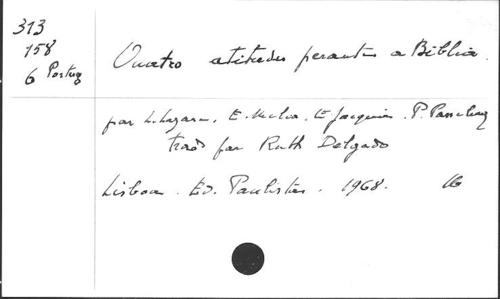 313
158
6 Portug
Quatro atitudes perante a Bíblia.
par L. Lazare, E. Jacquin. P.
trad par Ruth Delgado
Lisboa. Ed. Paulistas. 1968. 16